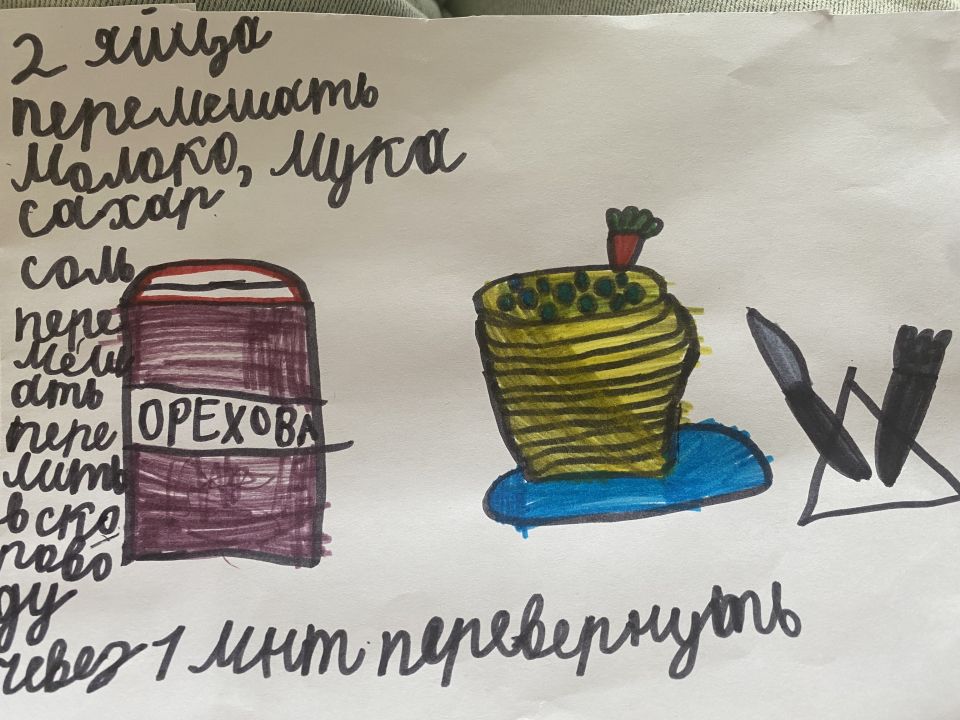 2 яйца
перемешать
молоко, мука
сахар
соль
пере
меш
ать
пере
лить
в ско
рово
ду
через 1 мнт перевернуть
ОРЕХОВА